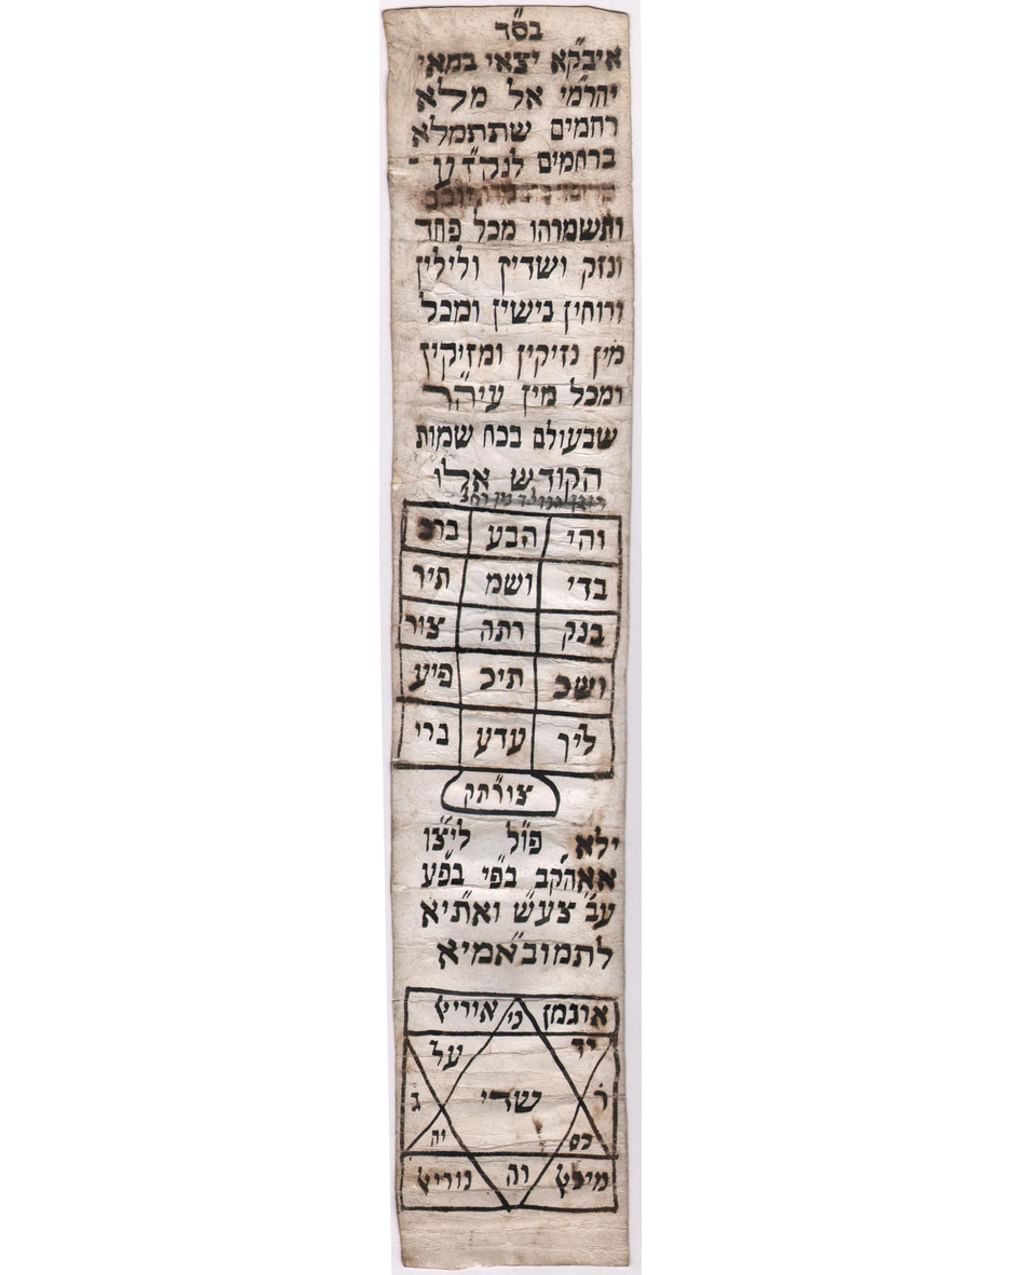 בס״ד
איב״קא יצאי במאי
יהר״מי אל מלא
רחמים שתתמלא
ברחמים לנק״דע -
ותשמרהו מכל פחד
ונזק ושדין ולילין
ורוחין בישין ומכל
מין נזיקין ומזיקין
ומכל מין עיה״ר
שבעולם בכח שמות
הקודש אלו
והי הבע ברכ
בדי ושמ תיר
בנק רתה צור
ושכ תיכ פיע
ליך עדע ברי
צור״תק
ילא פו״ל ליצ״ו
אאהק״ב בפ״י בפ״ע
ע״ב צעש ואת״יא
לתמוב״אמיא
אוגמן כי אוריץ
יד על
שדי
ר ג
כס יה
מיכץ וה נוריץ